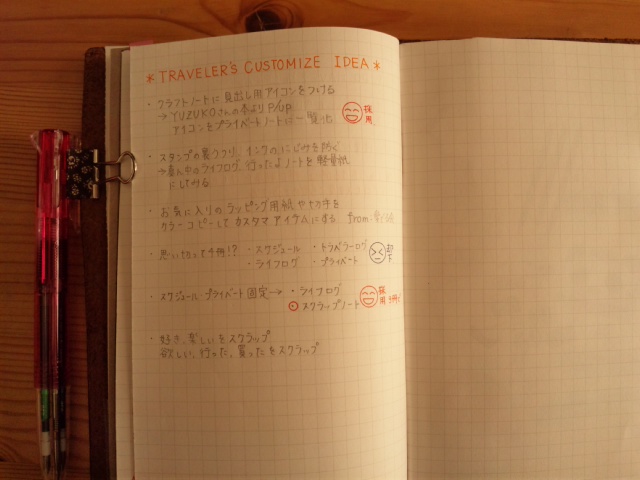 *TRAVELER'S CUSTOMIZE IDEA*
・クラフトノートに見出し用アイコンをつける
→YUZUKOさんの本よりP/Up
アイコンをプライベートノートに一覧化
採用
・スタンプの裏うつり、インクのにじみを防ぐ
→真ん中のライフログ、行ったよノートを軽量紙
にしてみる
・お気に入りのラッピング用紙や切手を
カラーコピーしてカスタマアイテムにする from
・思い切って4冊!? ・スケジュール ・トラベラーログ
・ライフログ ・プライベート
却下
・スケジュール・プライベート固定→・ライフログ
スクラップノート
採用
・好き、楽しいをスクラップ
欲しい、行った、買ったをスクラップ